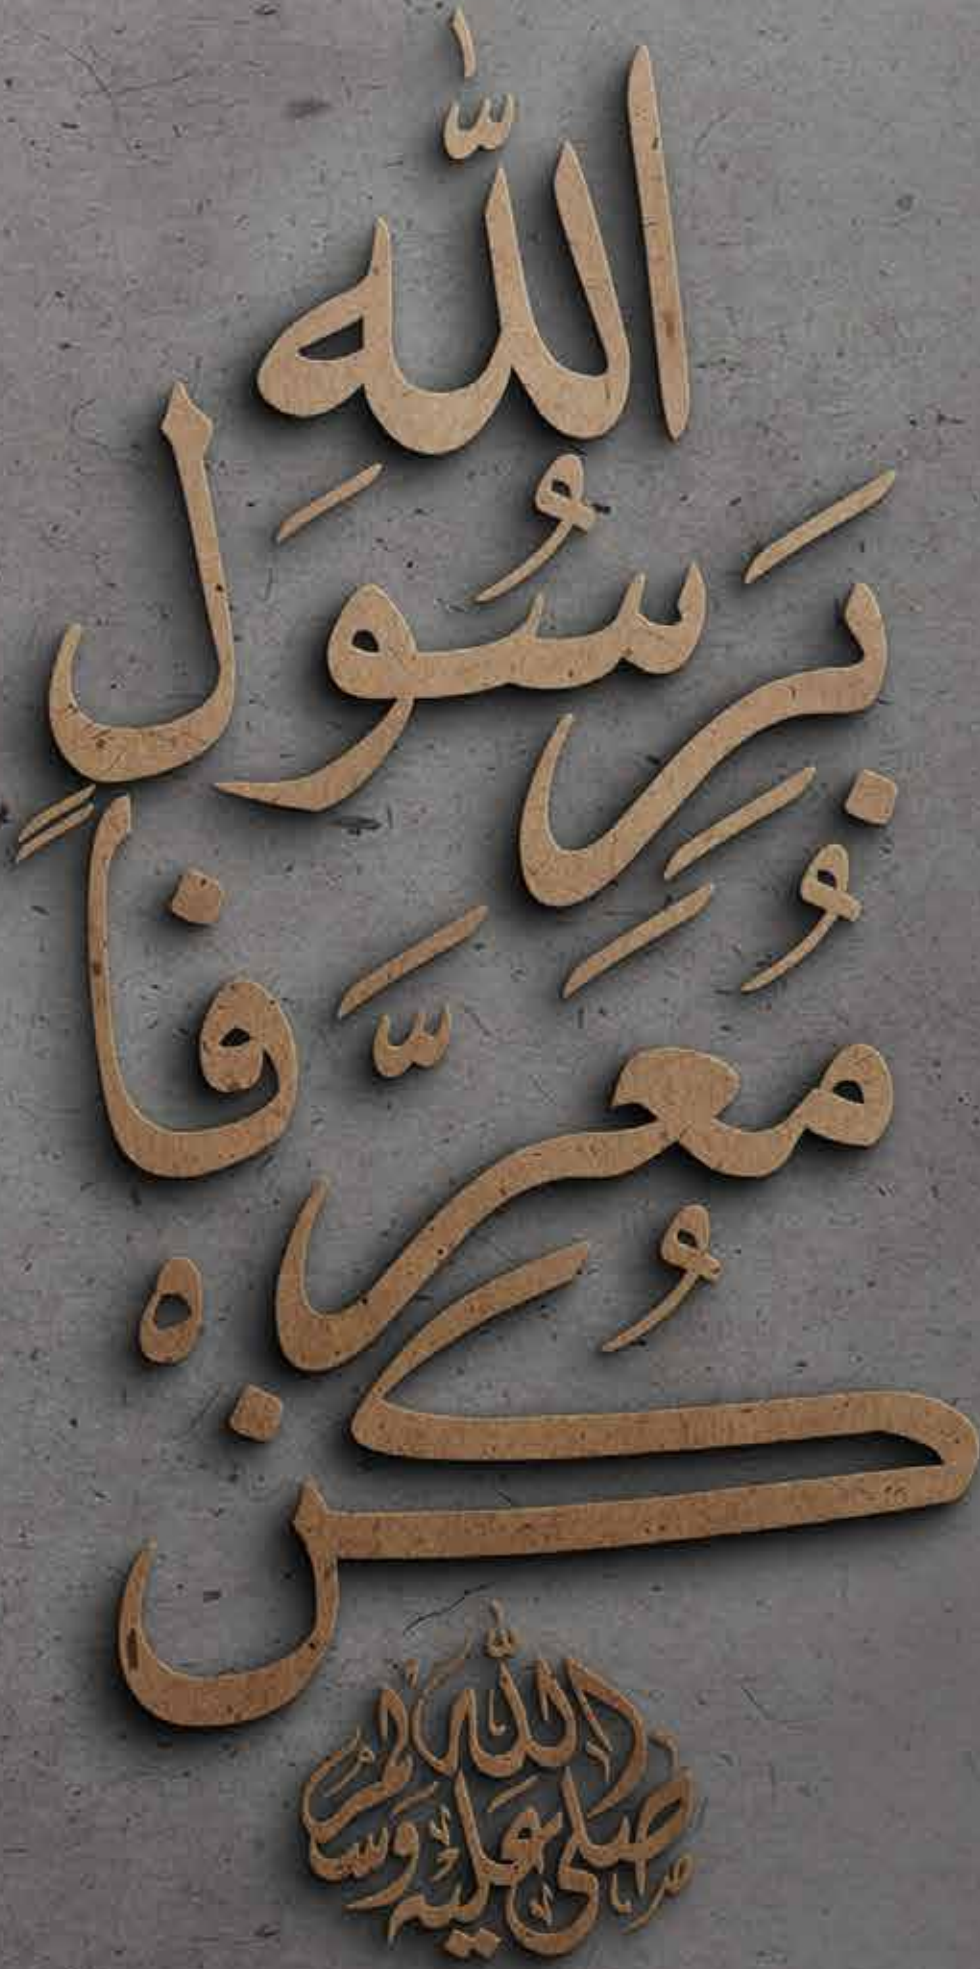 كُنْ
مُعَرَّفًا
بِرَسُولِ
اللّٰهِ
صلى الله عليه وسلم